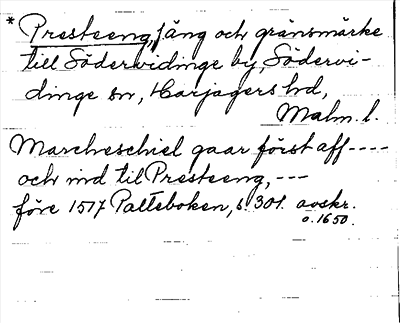 * Presteeng, fäng och gränsmärke
till Södervidinge by, Södervi-
dinge sn, Harjagers hd,
Malm. l.
Marcheschiel gaar först aff ----
och ind til Presteeng, ---
före 1517 Palteboken, s. 301. avskr.
o. 1650.